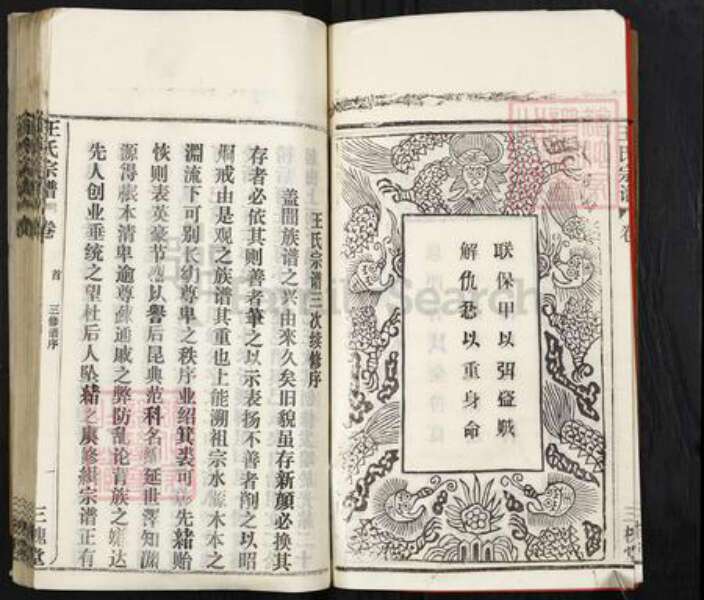 联保甲以弭盗贼
解仇忿以重身命
王氏宗谱
王氏宗谱三次续修序
盖闻族谱之兴由来久矣旧貌虽存新颜必换其
存者必依其则善者筆之以示表扬不善者削之以昭
戒由是观之族谱其重也上能溯祖宗水源木本之
渊流下可别长幼尊卑之秩序业绍箕裘可 先緒贻
恢则表英豪节 以譽后昆典范科名綿延世澤知淵
源得根本清卑逾尊疎逾戚之弊防乱论 族之 达
先人创业垂统之望杜后人坠緒之虞修缉宗谱正有
王氏宗谱 卷
首 三修谱序
一
三槐堂
FamilySearch